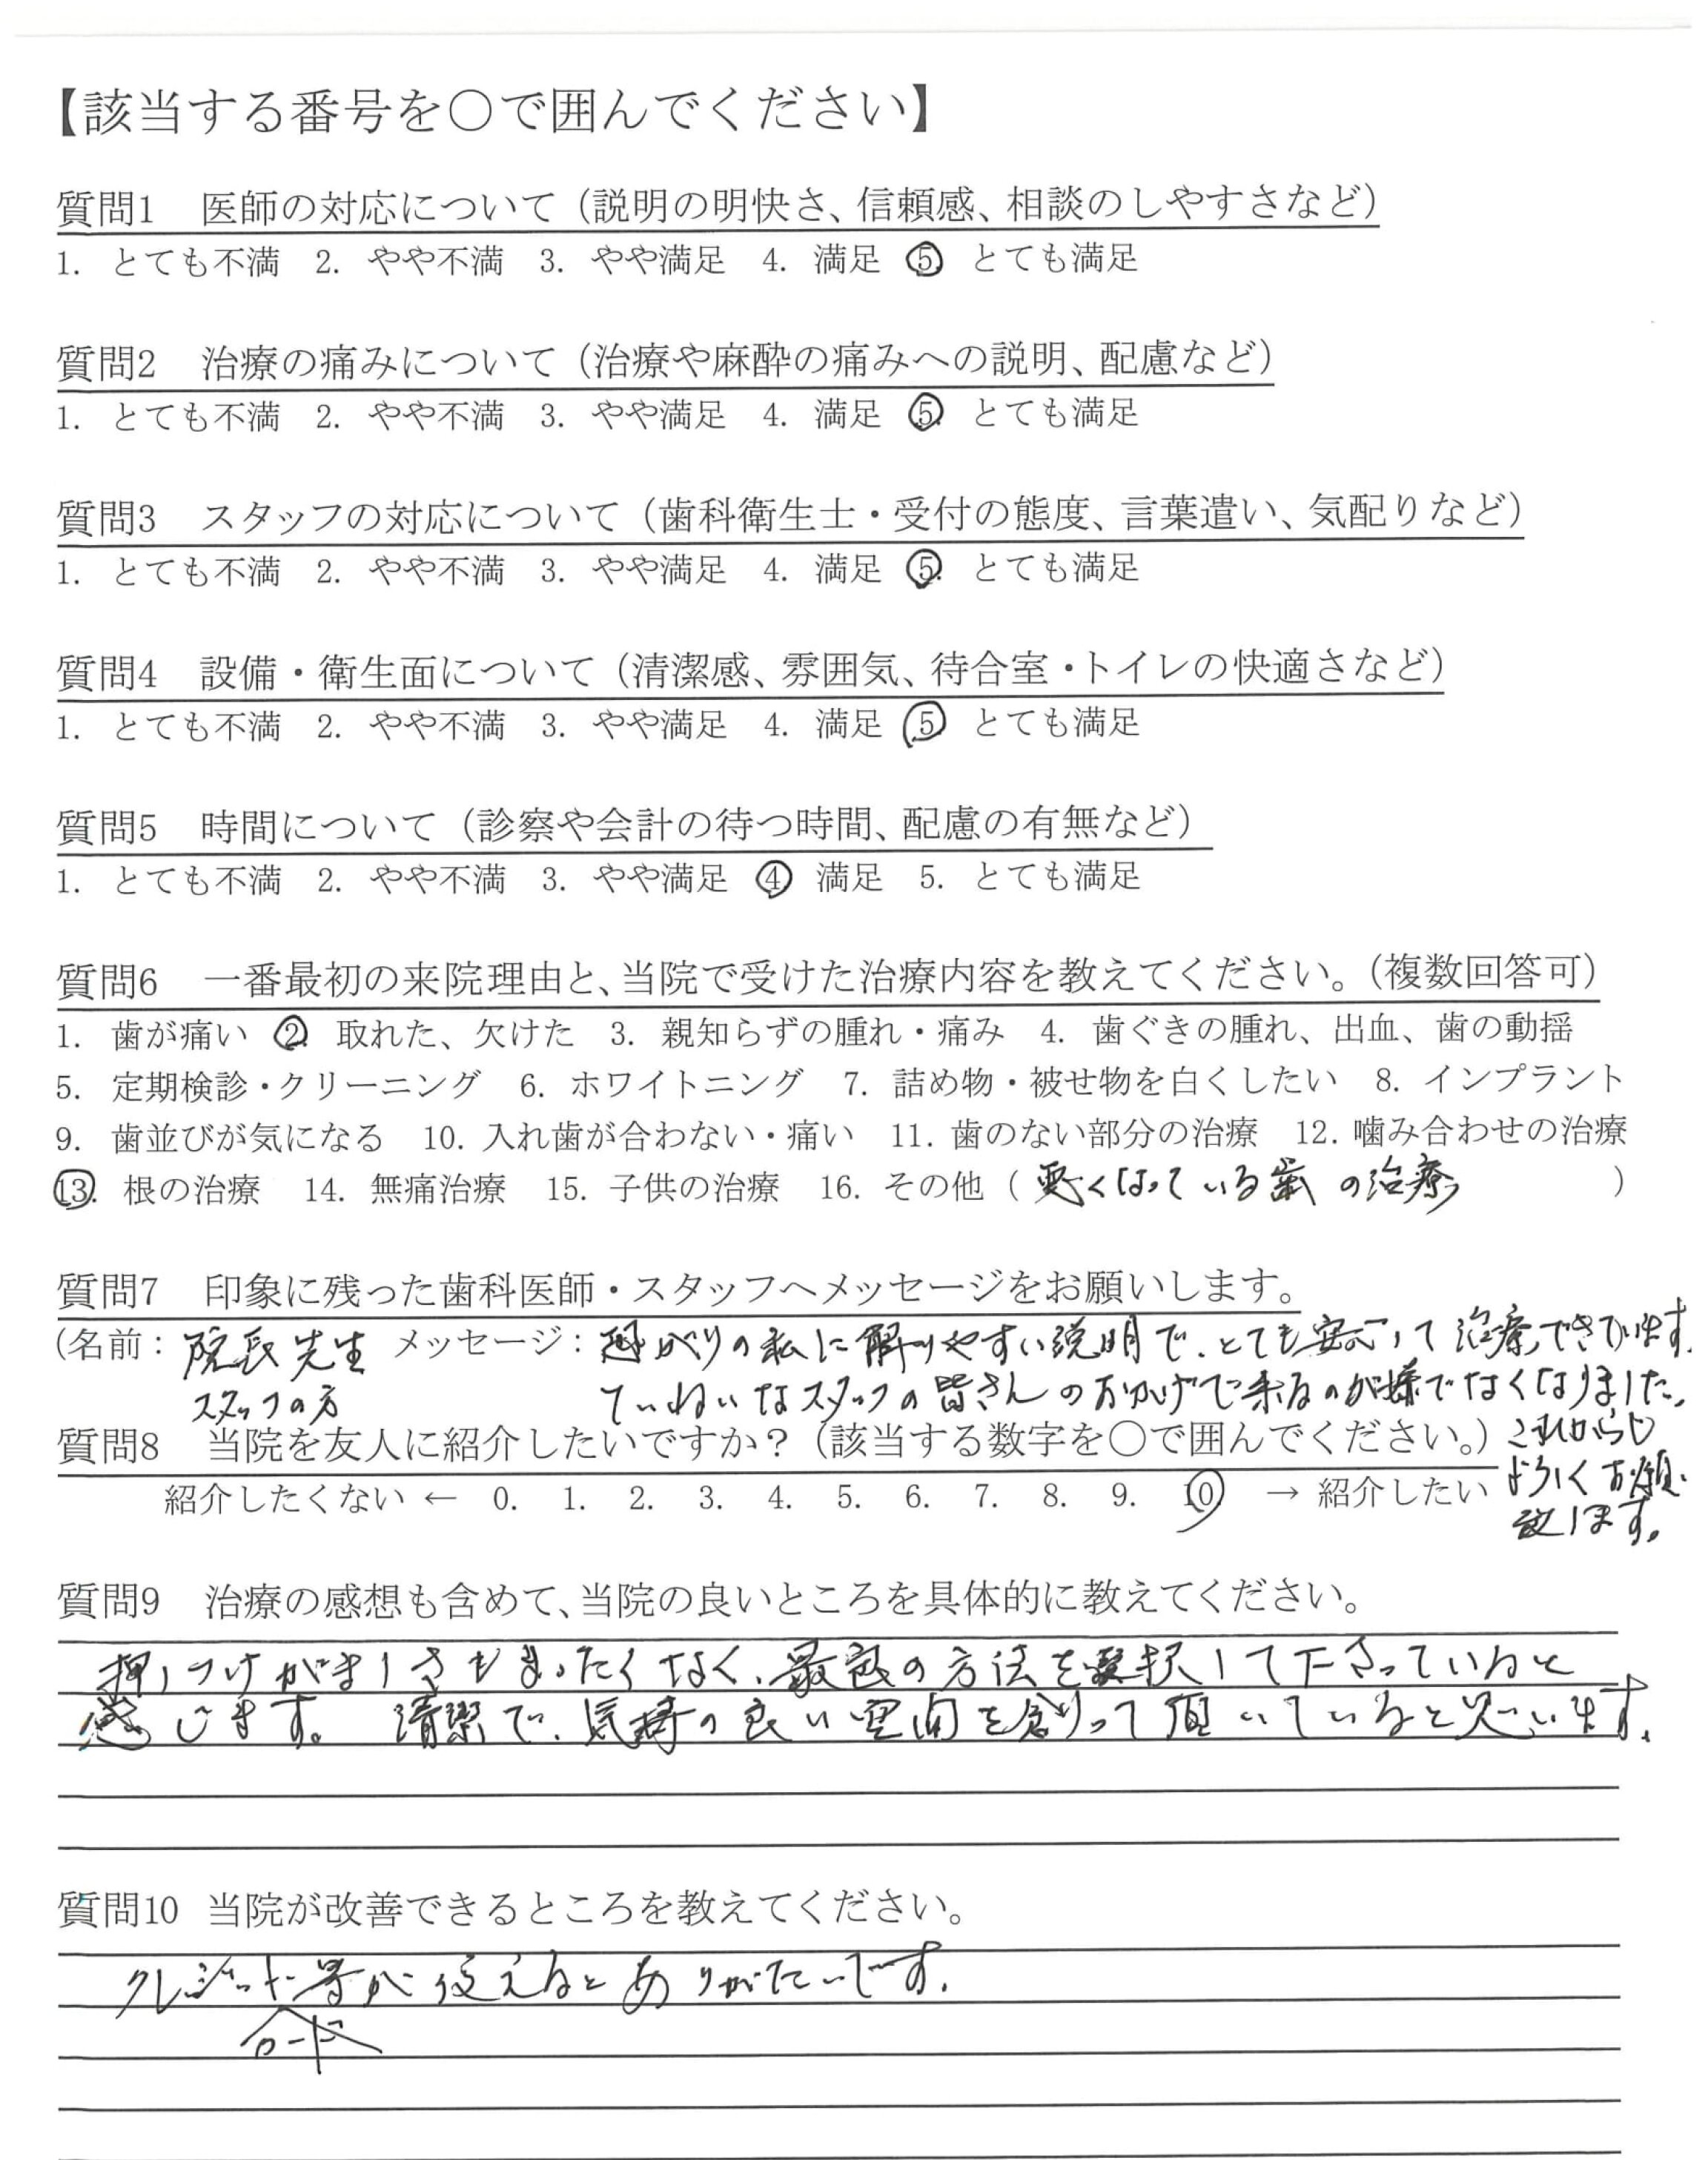 【該当する番号を○で囲んでください】
質問1 医師の対応について（説明の明快さ、信頼感、相談のしやすさなど）
1. とても不満 2. やや不満 3. やや満足 4. 満足 5. とても満足
質問2 治療の痛みについて（治療や麻酔の痛みへの説明、配慮など）
1. とても不満 2. やや不満 3. やや満足 4. 満足 5. とても満足
質問3 スタッフの対応について（歯科衛生士・受付の態度、言葉遣い、気配りなど）
1. とても不満 2. やや不満 3. やや満足 4. 満足 5. とても満足
質問4 設備・衛生面について（清潔感、雰囲気、待合室・トイレの快適さなど）
1. とても不満 2. やや不満 3. やや満足 4. 満足 5. とても満足
質問5 時間について（診察や会計の待つ時間、配慮の有無など）
1. とても不満 2. やや不満 3. やや満足 4. 満足 5. とても満足
質問6 一番最初の来院理由と、当院で受けた治療内容を教えてください。（複数回答可）
1. 歯が痛い 2. 取れた、欠けた 3. 親知らずの腫れ・痛み 4. 歯ぐきの腫れ、出血、歯の動揺
5. 定期検診・クリーニング 6. ホワイトニング 7. 詰め物・被せ物を白くしたい 8. インプラント
9. 歯並びが気になる 10. 入れ歯が合わない・痛い 11. 歯のない部分の治療 12. 噛み合わせの治療
13. 根の治療 14. 無痛治療 15. 子供の治療 16. その他（悪くなっている歯の治療）
質問7 印象に残った歯科医師・スタッフへメッセージをお願いします。
（名前：院長先生 メッセージ：がりの私に解りやすい説明で、とても安心して治療できています。
スタッフの方 ていねいなスタッフの皆さんのおかげで来るのが嫌でなくなりました。
これからも
よろしくお願い
致します。
質問8 当院を友人に紹介したいですか？（該当する数字を○で囲んでください。）
紹介したくない ← 0. 1. 2. 3. 4. 5. 6. 7. 8. 9. 10 → 紹介したい
質問9 治療の感想も含めて、当院の良いところを具体的に教えてください。
押しつけがましさもまったくなく、最良の方法を選択して下さっていると
感じます。 清潔で、気持の良い空間を創って頂いていると思います。
質問10 当院が改善できるところを教えてください。
クレジットカード等が使えるとありがたいです。